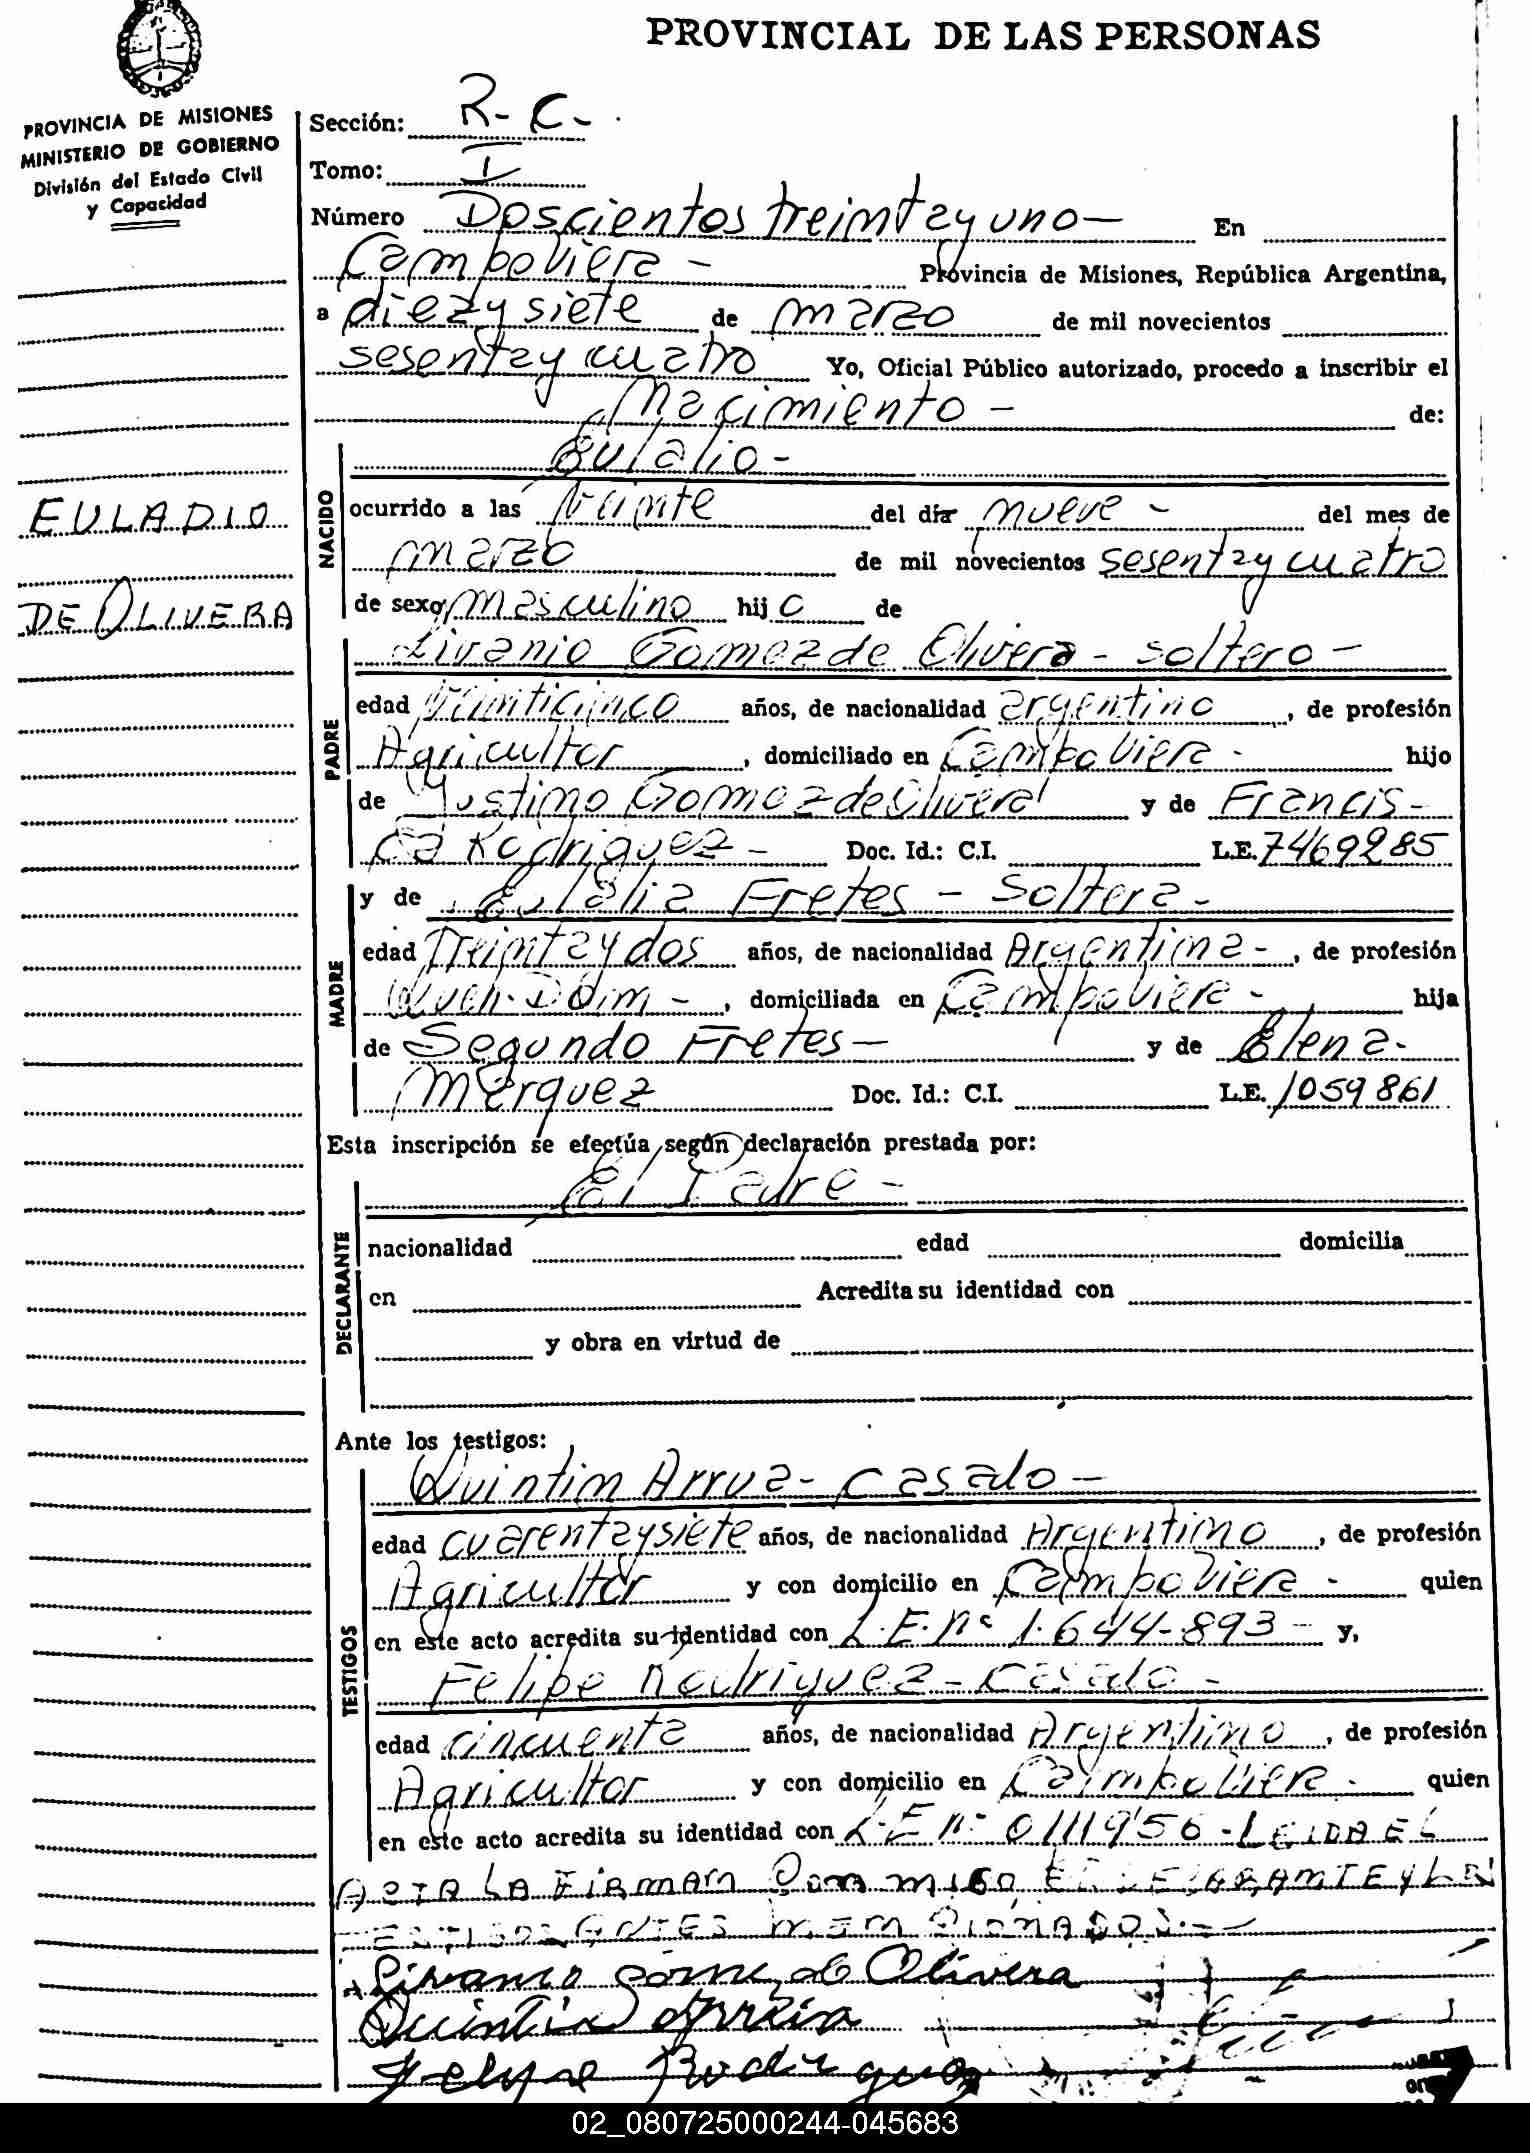 PROVINCIAL DE LAS PERSONAS
PROVINCIA DE MISIONES
MINISTERIO DE GOBIERNO
División del Estado Civil
y Capacidad
EULADIO
DE OLIVERA
Sección: R-C-
Tomo: I
Número Doscientos treintayuno- En
Campo Viera - Provincia de Misiones, República Argentina,
a diezysiete de marzo de mil novecientos
sesentaycuatro Yo, Oficial Público autorizado, procedo a inscribir el
Nacimiento - de:
NACIDO
Eulalio-
ocurrido a las veinte del día nueve - del mes de
marzo de mil novecientos sesentaycuatro
de sexo masculino hijo de
PADRE
Livanio Gomez de Olivera - soltero -
edad veinticinco años, de nacionalidad argentino, de profesión
Agricultor, domiciliado en Campo Viera - hijo
de Justino Gomez de Olivera y de Francis-
ca Rodriguez - Doc. Id.: C.I. L.E. 7469285
MADRE
y de Eulalia Fretes - Soltera -
edad Treintaydos años, de nacionalidad Argentina -, de profesión
Queh. Dom -, domiciliada en Campo Viera - hija
de Segundo Fretes - y de Elena
Marquez Doc. Id.: C.I. L.E. 1059861
Esta inscripción se efectúa según declaración prestada por:
DECLARANTE
El Padre -
nacionalidad edad domicilia
en Acredita su identidad con
y obra en virtud de
Ante los testigos:
TESTIGOS
Quintin Arrua - casado -
edad cuarentaysiete años, de nacionalidad Argentino, de profesión
Agricultor y con domicilio en Campo Viera - quien
en este acto acredita su identidad con L.E. nº 1.644-893 - y,
Felipe Rodriguez - casado -
edad cincuenta años, de nacionalidad Argentino, de profesión
Agricultor y con domicilio en Campo Viera - quien
en este acto acredita su identidad con L.E nº 0111956 - LEIDA EL
ACTA LA FIRMAN CONMIGO EL DECLARANTE Y LOS
TESTIGOS ANTES MENCIONADOS. -
Livanio Gomez de Olivera
Quintin Arrua
Felipe Rodriguez
02_080725000244-045683